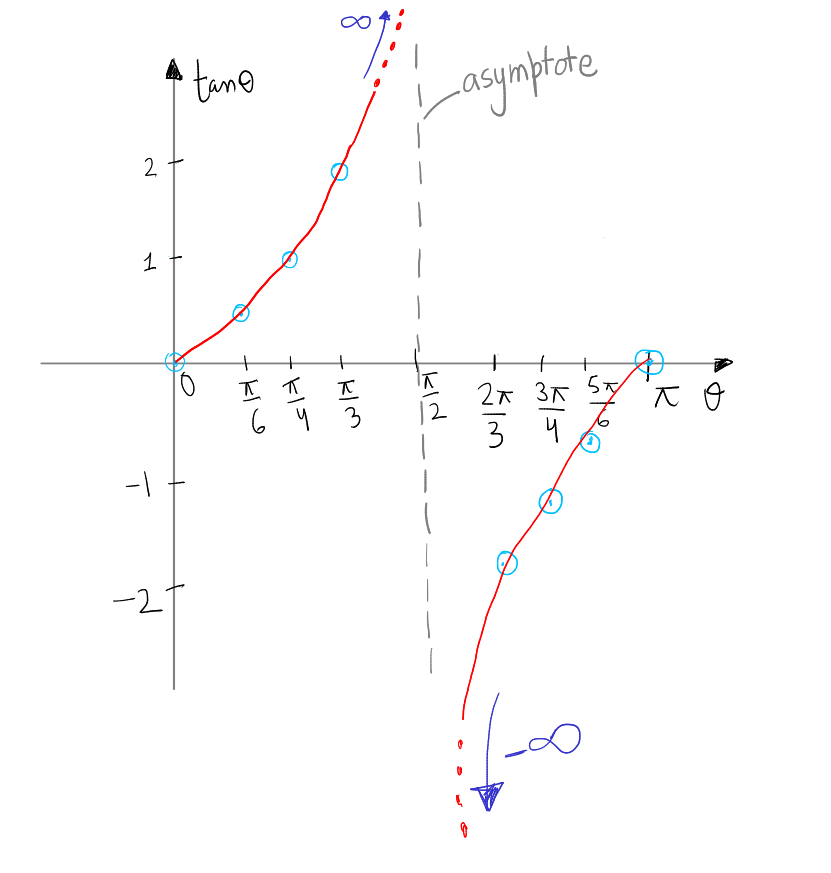 ∞
tanθ
asymptote
2
1
0
π/6
π/4
π/3
π/2
2π/3
3π/4
5π/6
π
θ
-1
-2
-∞